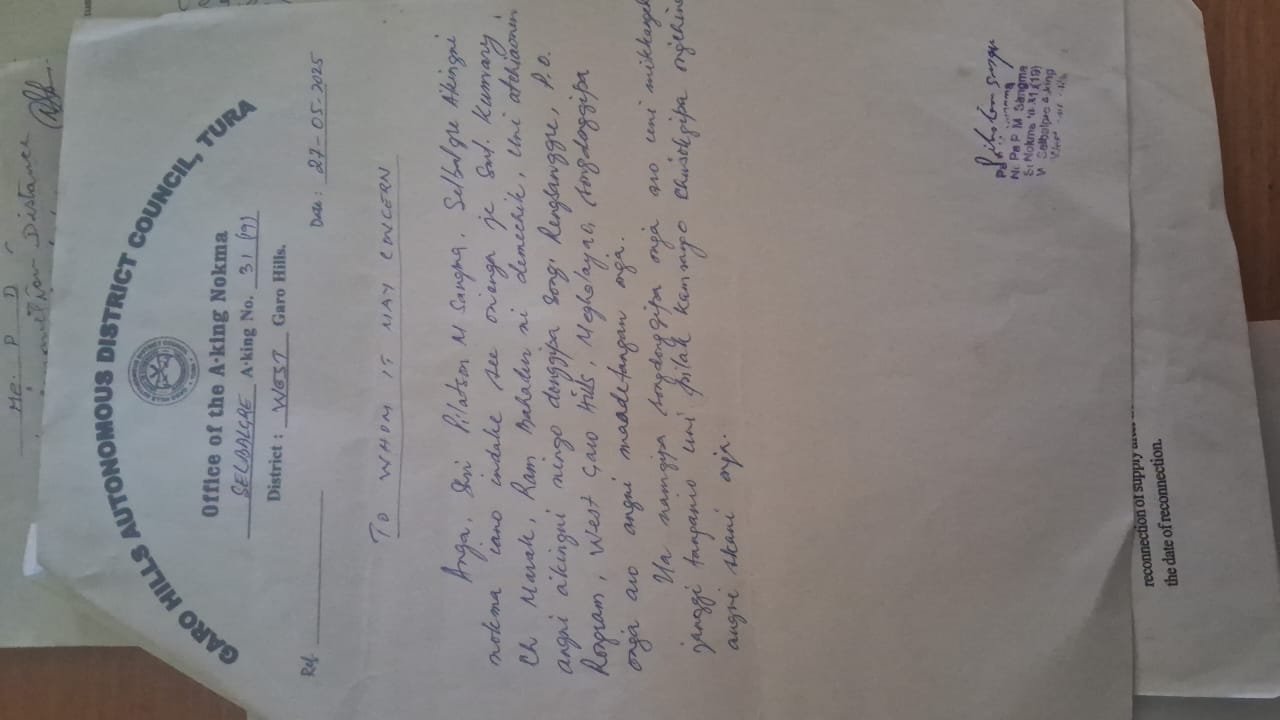 GARO HILLS AUTONOMOUS DISTRICT COUNCIL, TURA
Office of the A·king Nokma
SELBALGRE A·king No. 31 (19)
District : WEST Garo Hills.
Ref. Date : 27-05-2025
TO WHOM IT MAY CONCERN
Anga, Sri Pilatson M Sangma. Selbalgre Akingni
nokma iano indake see on·enga je Smt. Kumvary
Ch Marak, Ram Bahadur ni demechik, uni
angni a·kingni ningo donggipa song, Rengsanggre, P.O.
Rongram, West Garo Hills, Meghalaya, songdonggipa
onga aro angni maadetangan onga.
Ua namgipa songdonggipa onga aro uni
janggi tanganio uni pilak kamrango
angni skani onga.
Ni Pa P M Sangma
Nokma 31 (19)
reconnection of supply
the date of reconnection.
Distance